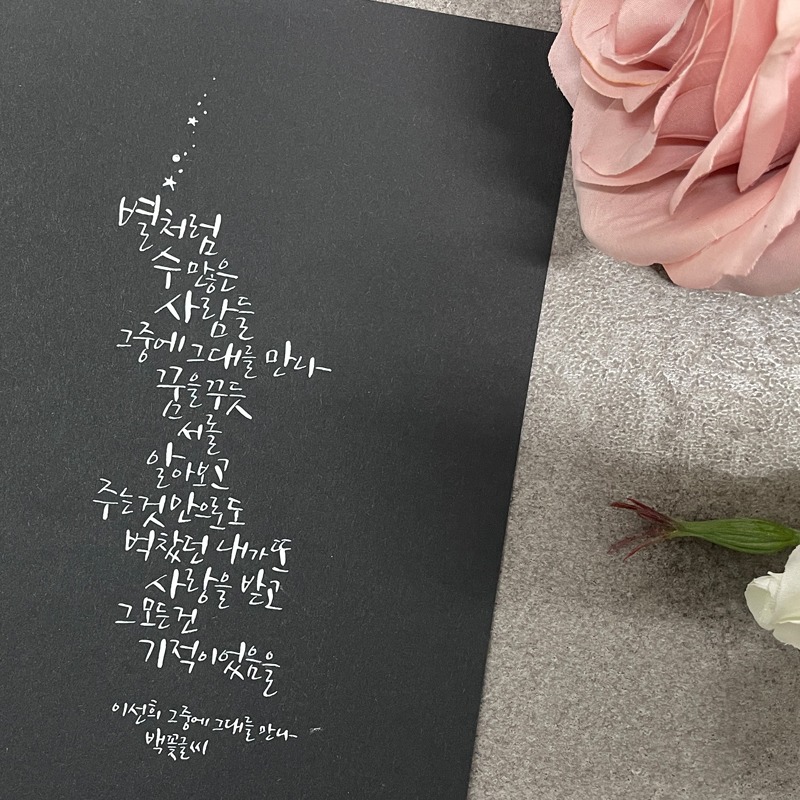 별처럼
수 많은
사람들
그중에 그대를 만나
꿈을 꾸듯
서롤
알아보고
주는 것 만으로도
벅찼던 내가 또
사랑을 받고
그 모든 건
기적이었음을
이선희 그중에 그대를 만나
백꽃글씨